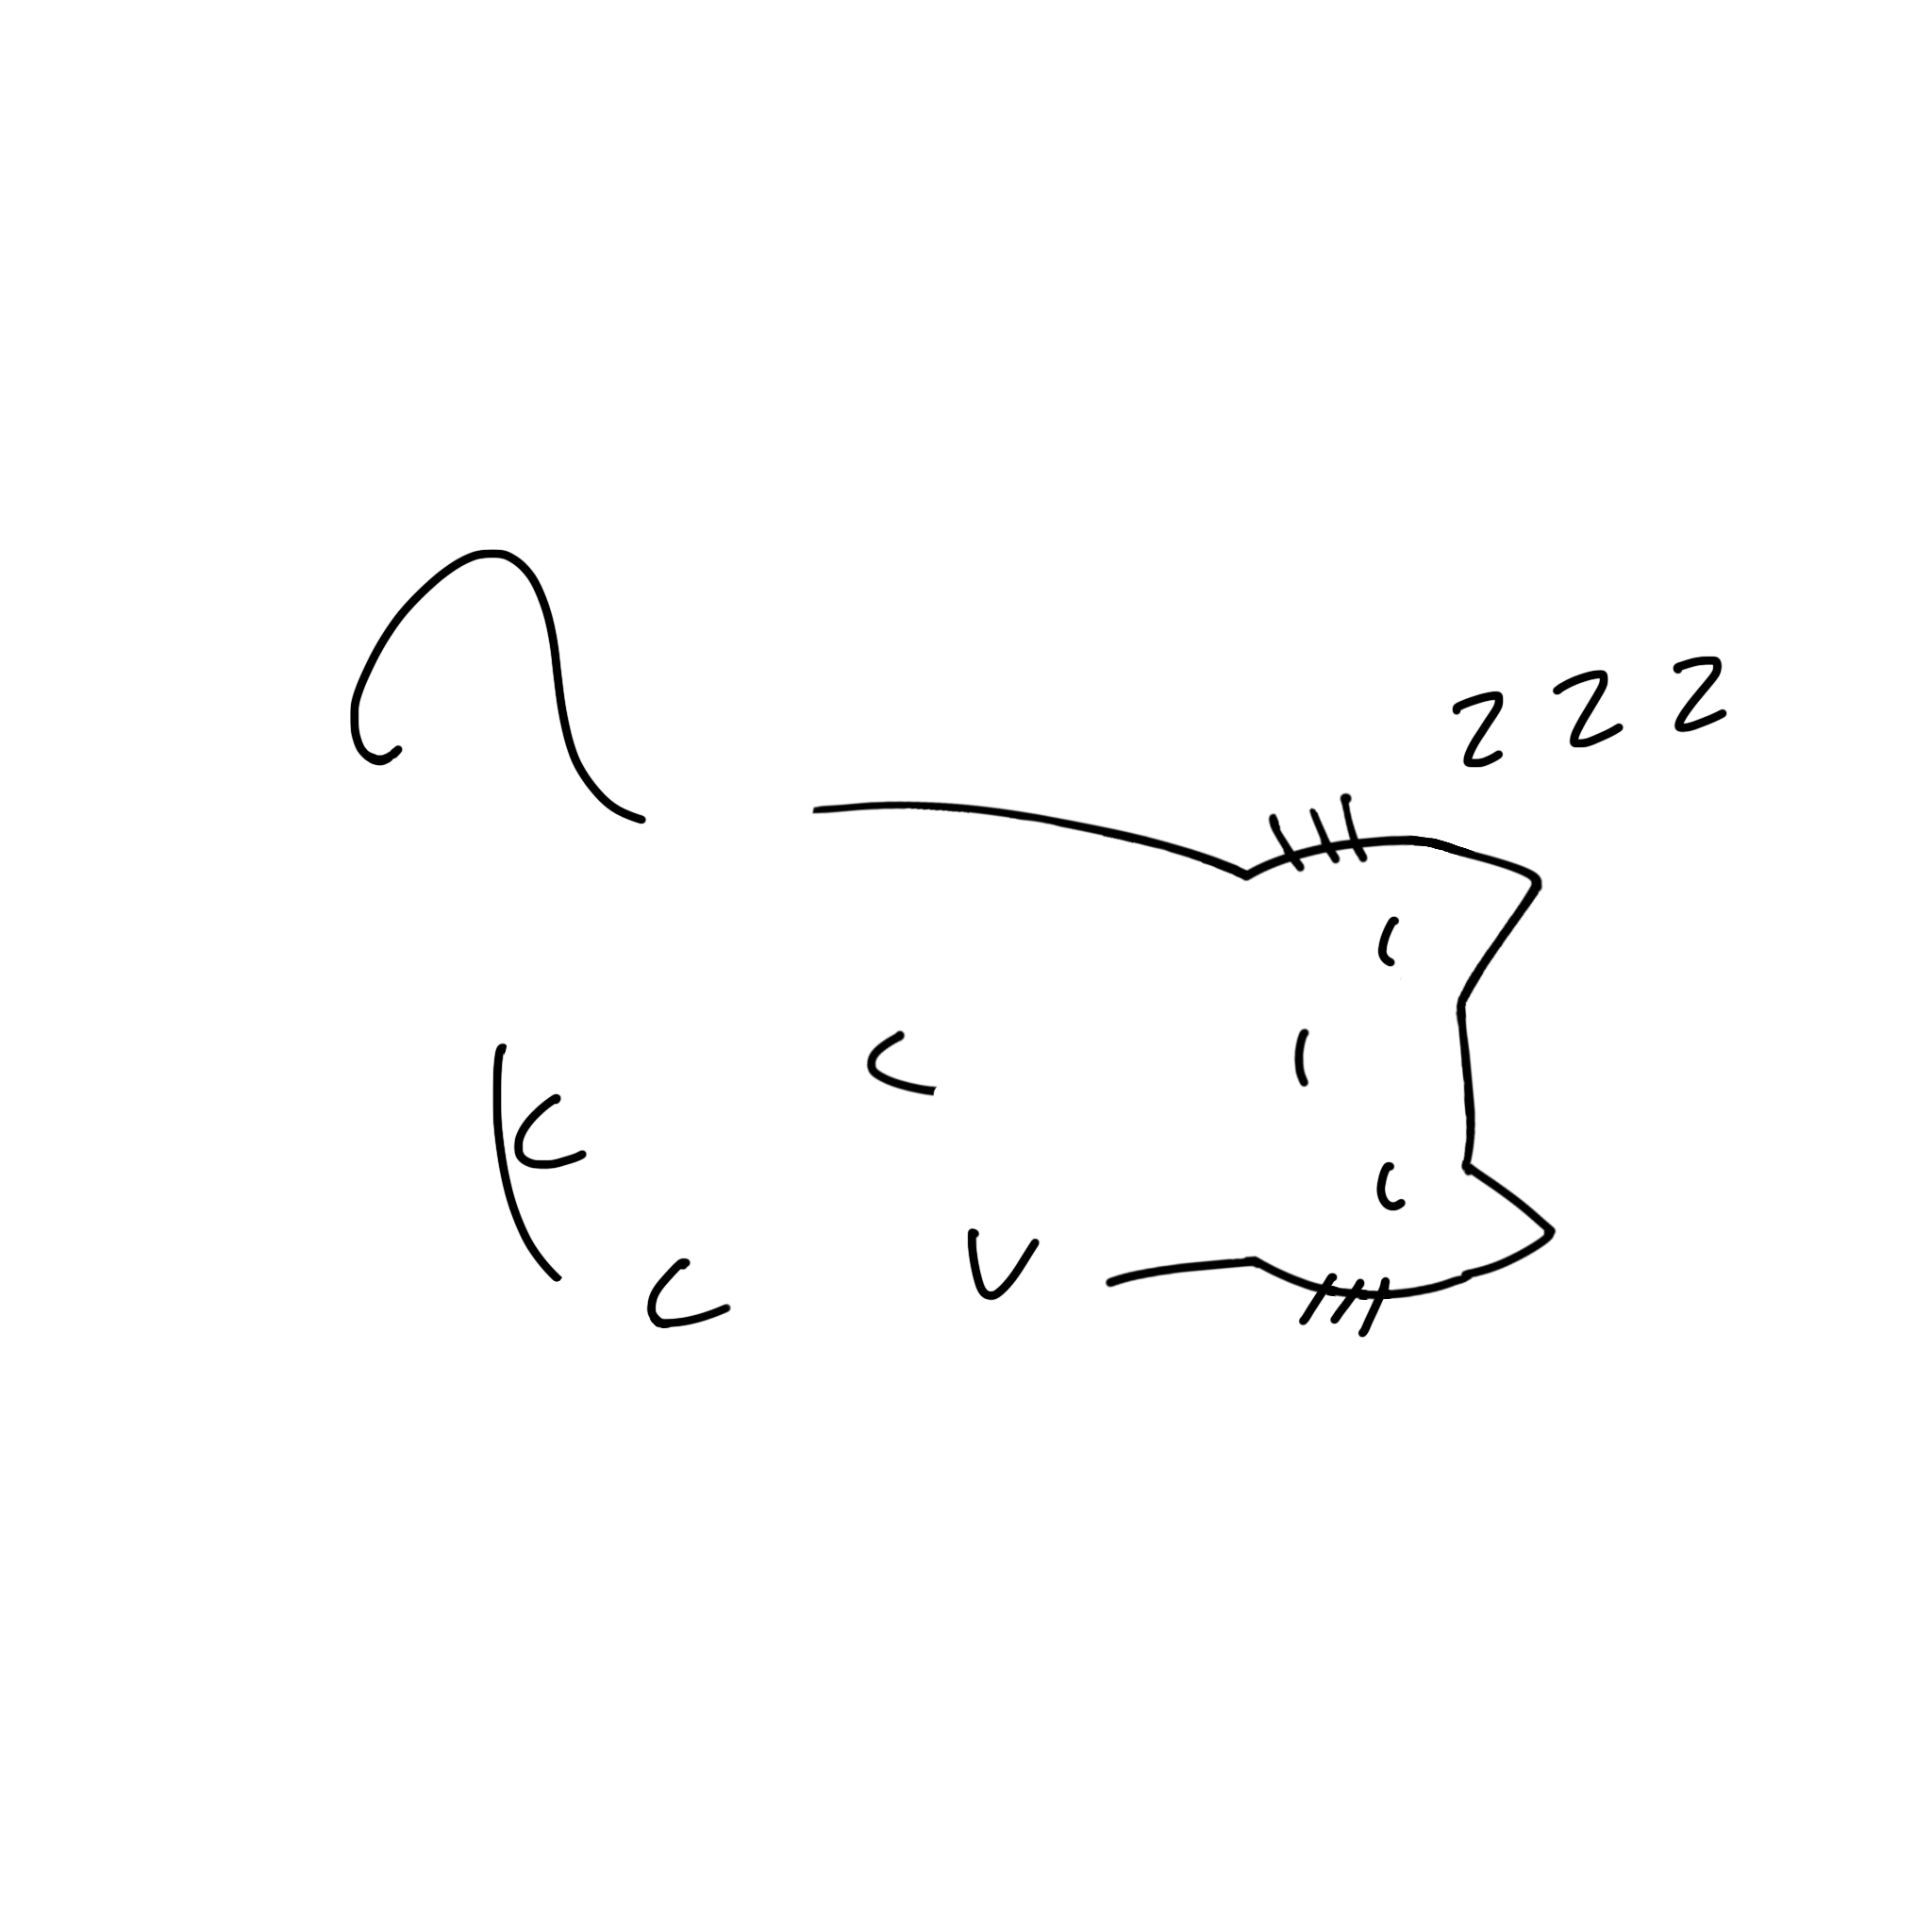 z z z